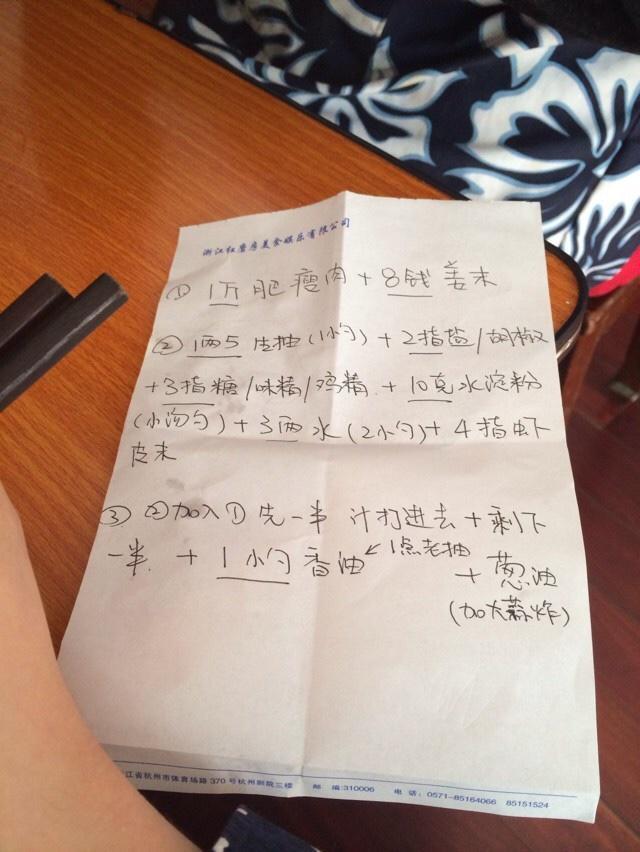 浙江红磨房美食娱乐有限公司
① 1斤肥瘦肉+8钱姜末
② 1两5生抽(1小勺)+2指盐/胡椒
+3指糖/味精/鸡精+10克水淀粉
(小汤勺)+3两水(2小勺)+4指虾
皮末
③ ②加入①先一半汁打进去+剩下
一半.+1小勺香油←1点老抽
+葱油
(加大蒜炸)
江省杭州市体育场路370号杭州剧院三楼 邮编:310006 电话:0571-85164066 85151524